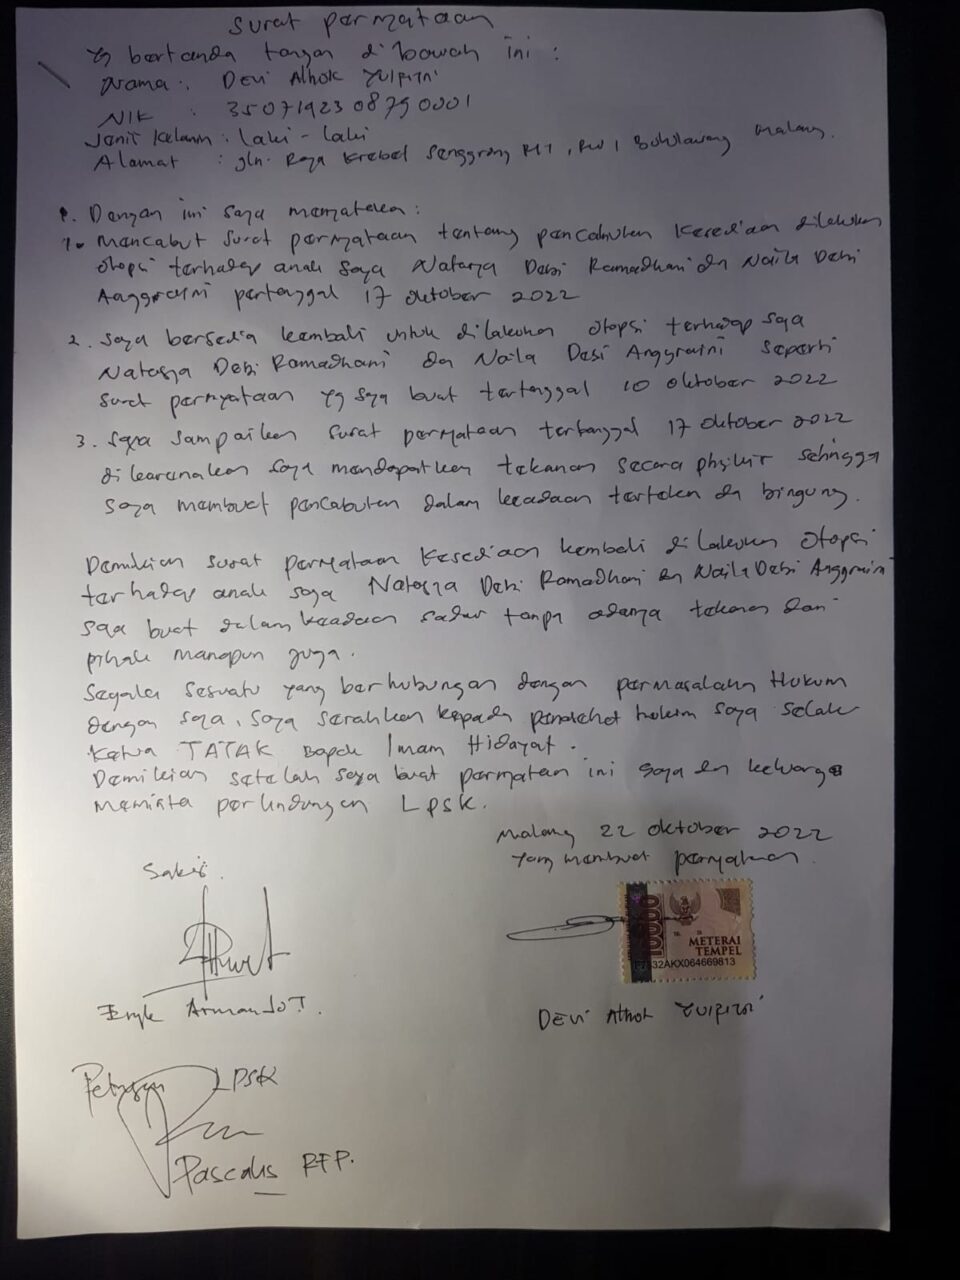 Surat pernyataan
Yg bertanda tangan dibawah ini :
Nama : DEVI Athok YULFITRI
NIK : 3507192308790001
Jenis Kelamin : Laki - laki
Alamat : Jln. Raya Krebet Senggrong RT 1, RW 1 Bululawang Malang.
Dengan ini saya menyatakan :
1. Mencabut surat pernyataan tentang pencabutan kesediaan dilakukan
otopsi terhadap anak saya Natasya Debi Ramadhani dn Naila Debi
Anggraini pertanggal 17 oktober 2022
2. Saya bersedia kembali untuk dilakukan otopsi terhadap saya
Natasya Debi Ramadhani dn Naila Desi Anggraini seperti
surat pernyataan yg saya buat tertanggal 10 oktober 2022
3. saya sampaikan surat pernyataan tertanggal 17 oktober 2022
dikarenakan saya mendapatkan tekanan secara phsikis sehingga
saya membuat pencabutan dalam keadaan tertekan dn bingung.
Demikian surat pernyataan kesediaan kembali dilakukan otopsi
terhadap anak saya Natasya Debi Ramadhani dn Naila Debi Anggraini
saya buat dalam keadaan sadar tanpa adanya tekanan dari
pihak manapun juga.
Segala sesuatu yang berhubungan dengan permasalahan Hukum
dengan saya, saya serahkan kepada penasehat hukum saya selaku
Ketua TATAK Bapak Imam Hidayat.
Demikian setelah saya buat pernyataan ini saya dn keluarga
meminta perlindungan LPSK.
Malang 22 oktober 2022
Yang membuat pernyataan.
Saksi.
10000
METERAI
TEMPEL
32AKX064669813
Armando T.
DEVI Athok YULFITRI
Petugas LPSK
Pascalis RFP.